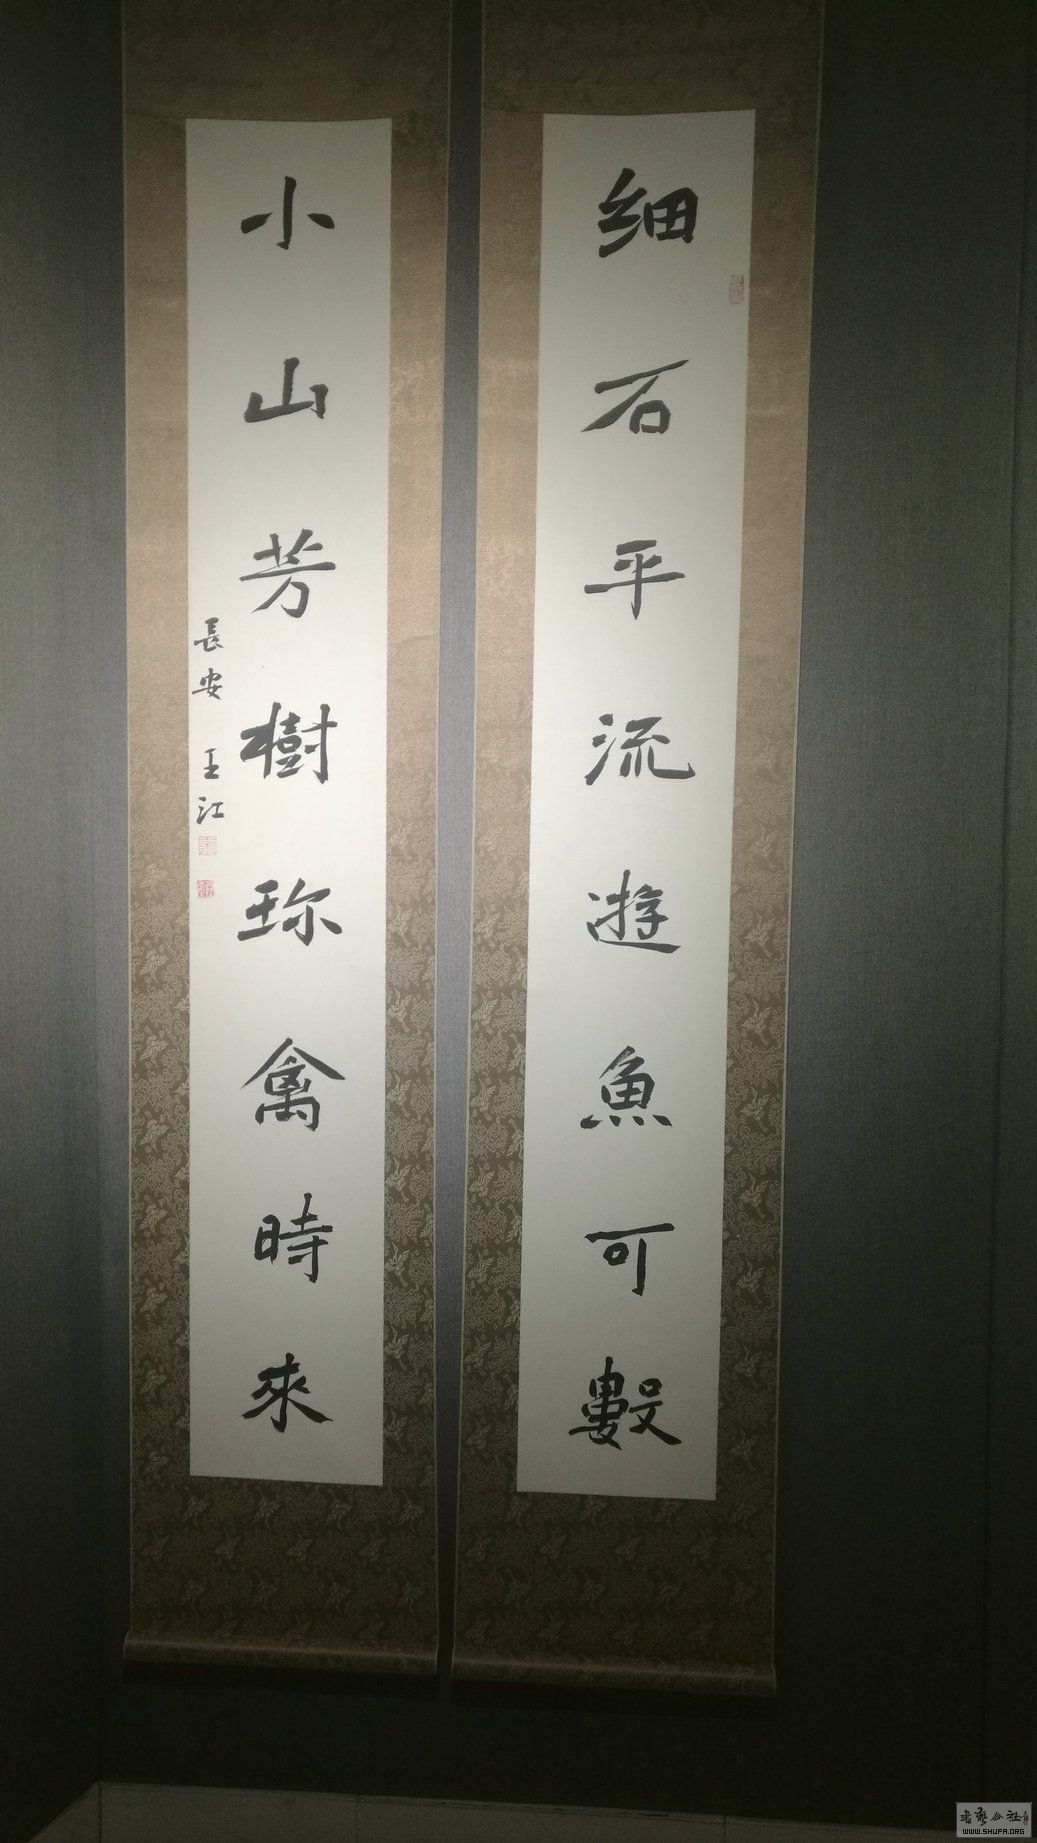 细石平流遊魚可數
小山芳樹珎禽時來
長安 王江
WWW.SHUFA.ORG